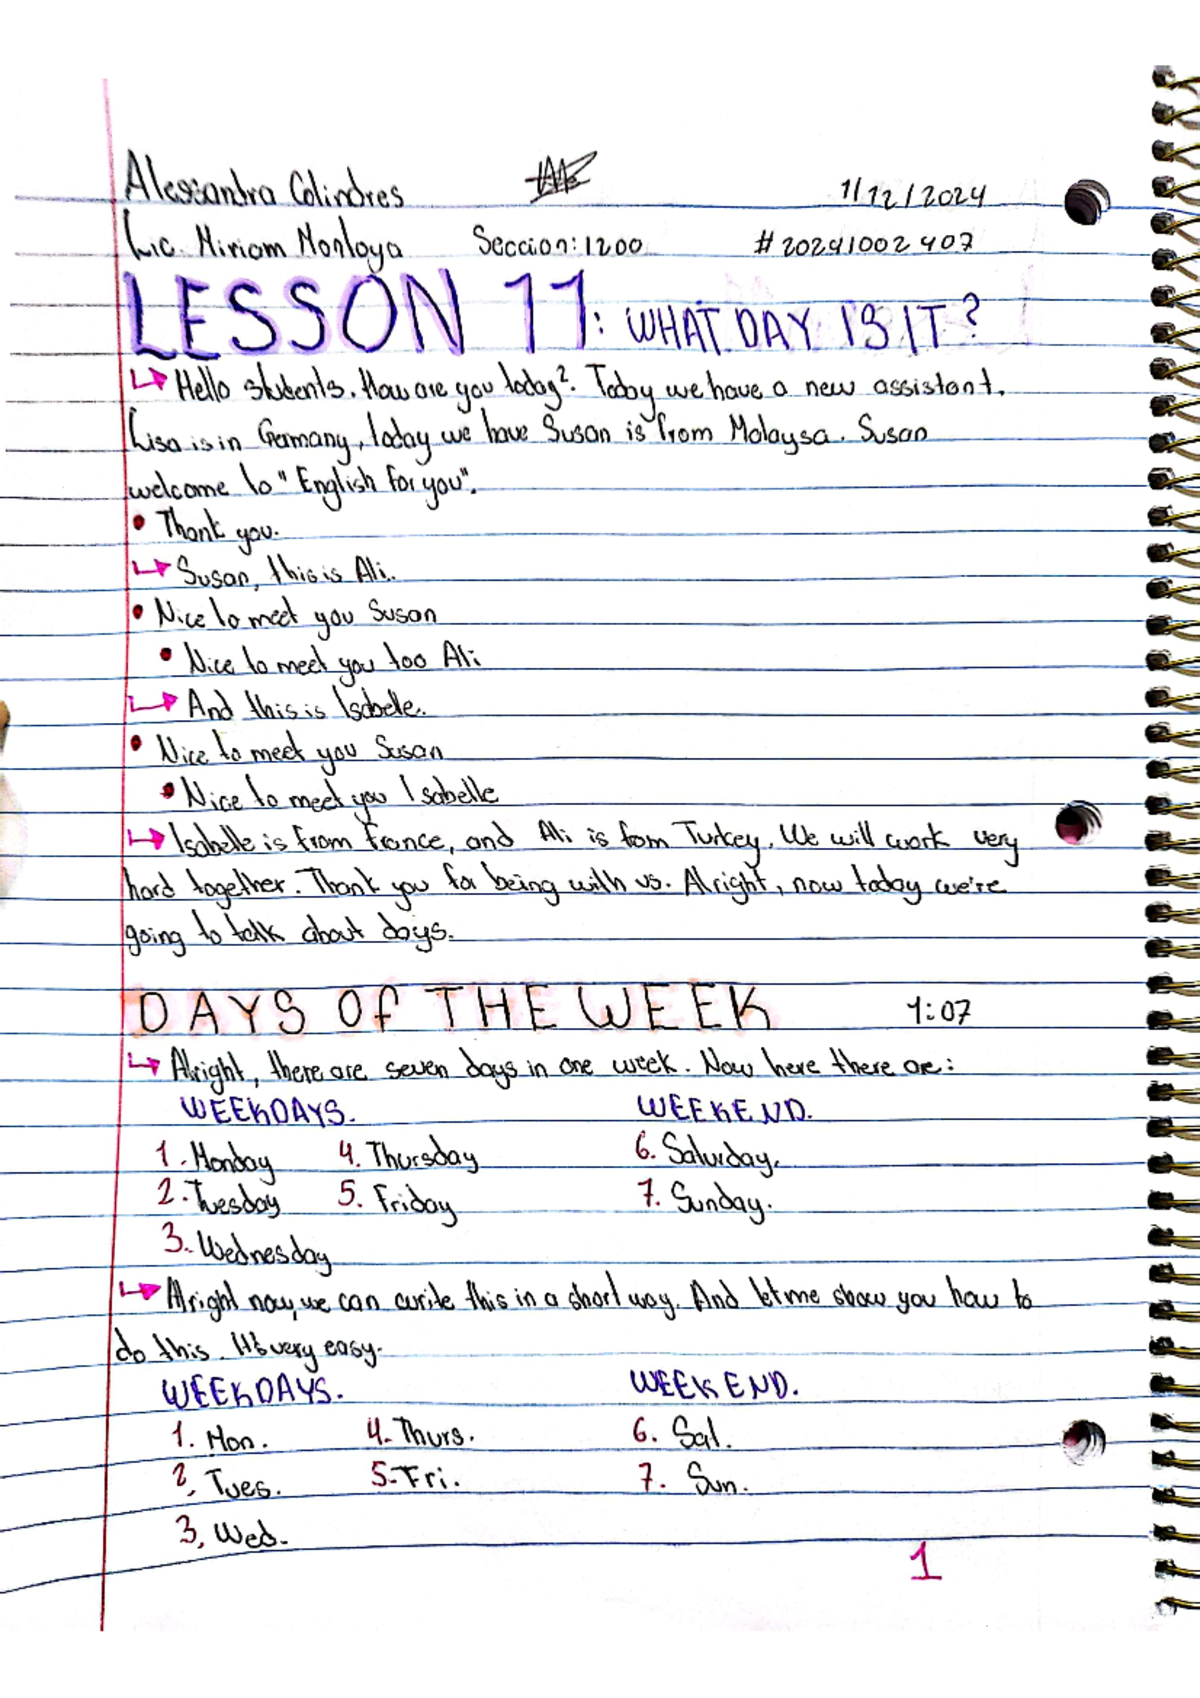 Alessandra Colindres 1/12/2024
Lic. Miriam Montoya Seccion: 1200 # 20241002407
LESSON 11: WHAT DAY IS IT?
Hello students. How are you today?. Today we have a new assistant.
Lisa is in Germany, today we have Susan is from Malaysa. Susan
welcome to "English For you".
• Thank you.
Susan, this is Ali.
• Nice to meet you Susan
• Nice to meet you too Ali
And this is Isabelle.
• Nice to meet you Susan
• Nice to meet you Isabelle
Isabelle is from France, and Ali is fom Turkey. We will work very
hard together. Thank you for being with us. Alright, now today we're
going to talk about days.
DAYS OF THE WEEK 1:07
Alright, there are seven days in one week. Now here there are:
WEEKDAYS. WEEKEND.
1. Monday 4. Thursday 6. Saturday.
2. Tuesday 5. Friday 7. Sunday.
3. Wednesday
Alright now, we can write this in a short way. And let me show you how to
do this. It's very easy.
WEEKDAYS. WEEKEND.
1. Mon. 4. Thurs. 6. Sat.
2. Tues. 5. Fri. 7. Sun.
3. Wed.
1